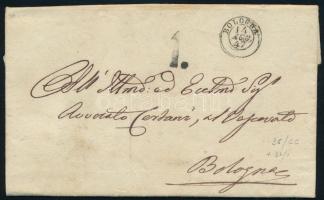 BOLOGNA
14
AGO
47
1.
All' Illmo: ed Eccmo Sigr
Avvocato Cerdani, al Vescovato
Bologna